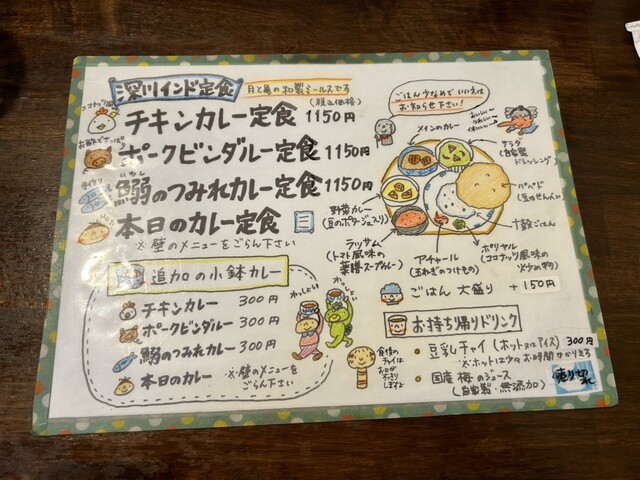 深川インド定食
月と亀の和製ミールスです
(税込価格)
ココナッツ風味
チキンカレー定食 1150円
お酢でさっぱり
ポークビンダルー定食 1150円
手作り
いわし
鰯のつみれカレー定食 1150円
本日のカレー定食
※壁のメニューをごらん下さい
追加の小鉢カレー
チキンカレー 300円
ポークビンダルー 300円
鰯のつみれカレー 300円
本日のカレー
※壁のメニューを
ごらん下さい
わっしょい
わっしょい
ごはん少なめで いい人は
お知らせ下さい!
メインのカレー
サラダ
(自家製
ドレッシング)
パパド
(豆のせんべい)
十穀ごはん
野菜カレー
(豆のポタージュ入り)
ラッサム
(トマト風味の
薬膳スープカレー)
アチャール
(玉ねぎのつけもの)
ポリヤル
(ココナッツ風味の
炒め物)
ごはん 大盛り + 150円
お持ち帰りドリンク
豆乳チャイ(ホット又はアイス) 300円
※ホットは少々お時間かかります
国産 梅のジュース
(自家製・無添加)
売り切れ